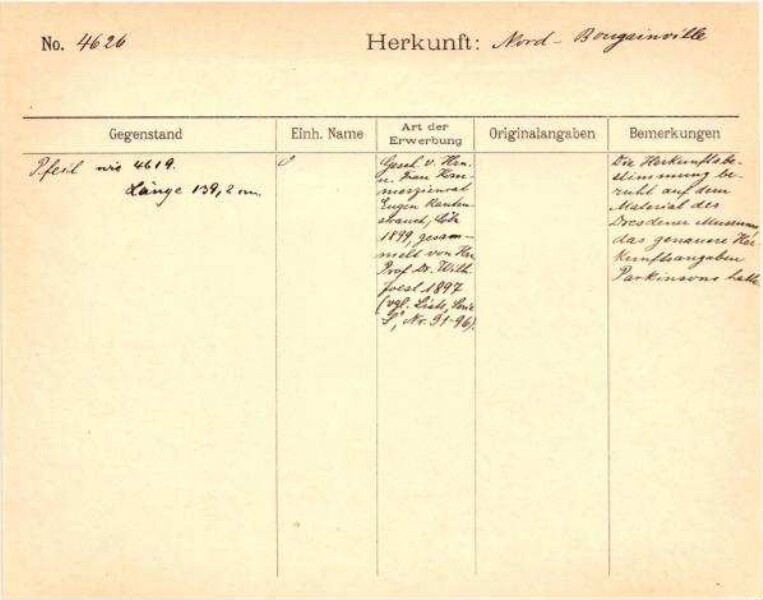 No. 4626
Herkunft: Nord-Bougainville
Gegenstand
Einh. Name
Art der
Erwerbung
Originalangaben
Bemerkungen
Pfeil wie 4619.
Länge 139,2 cm.
Gesch. v. Hrn.
u. Frau Kom-
merzienrat
Eugen Rauten-
strauch, Cöln
1899, gesam-
melt von Hrn
Prof. Dr. Wilh.
Joest 1897
(vgl. Liste, Serie
Nr. 91-96).
Die Herkunftsbe-
stimmung be-
ruht auf dem
Material des
Dresdener Museums,
das genauere Her-
kunftsangaben
Parkinsons hatte